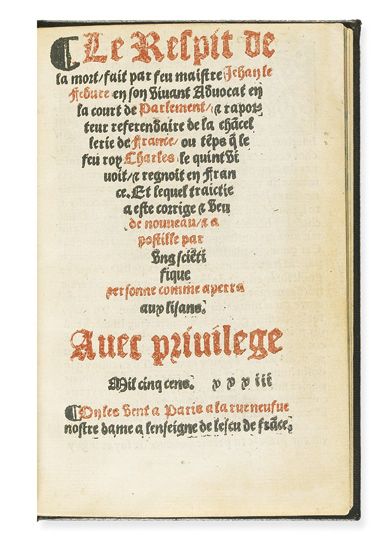 ¶ Le Respit de
la mort / fait par feu maistre Jehan le
Febure en son viuant Aduocat en
la court de Parlement / ⁊ rapor⸗
teur referendaire de la chãcel
lerie de France / ou tẽps q̃ le
feu roy Charles le quint vi
uoit / ⁊ regnoit en Fran
ce. Et lequel traictie
a este corrige ⁊ veu
de nouueau / ⁊ a
postille par
vng sciẽti
fique
personne comme aperra
aux lisans.
Auec priuilege
Mil cinq cens. xxxiii
¶ On les vent a Paris a la rue neufue
nostre dame a lenseigne de lescu de frãce.